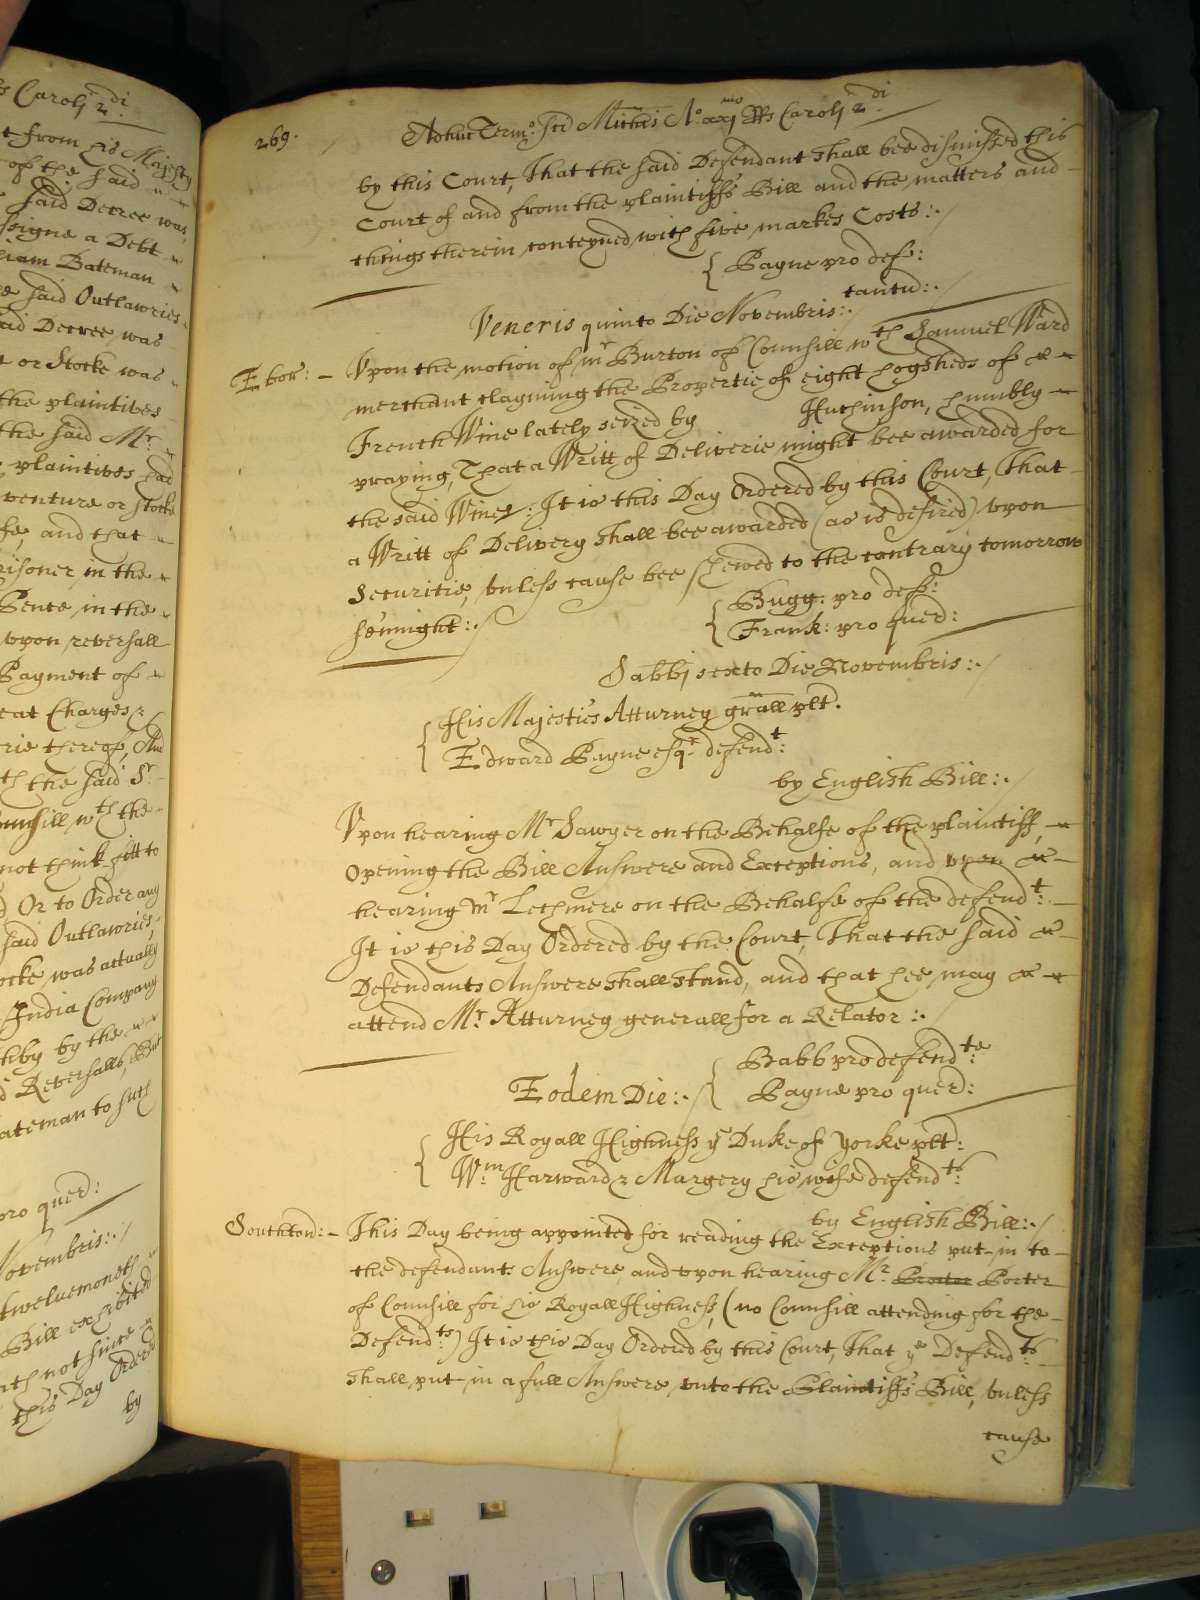 s Caroli 2di
t from his Majesty
of the said
said Decree was
ssigne a Debt
liam Bateman
e said Outlawries
aid Decree was
t or Stocke was
the plaintives
the said Mr
plaintives had
venture or Stocke
fe, and that
risoner in the
Pence in the
upon reversall
Payment of
eat Charges
rie thereof, And
th the said Sr
ounsill wth the
not think fitt to
Or to Order any
said Outlawries,
ocke was actually
India Company
by the
d Reversalls, But
ateman to such
pro quer:
Novembris:
twelvemoneth
Bill exhibited
ath not since
this Day Ordered
by
269.
Adhuc Termo: Sci Michis Ao xximo RRs Caroli 2di
by this Court, That the said Defendant shall bee dismissed this
Court of and from the plaintiffs Bill and the matters and
things therein conteyned, with five markes Costs:
{ Payne pro def:
tantu:
Veneris quinto Die Novembris:
Ebor: - Upon the motion of mr Burton of Counsill wth Samuel Ward
merchant clayming the Propertie of eight hogsheds of
French Wine lately seized by Hutchinson, humbly
praying, That a Writt of Deliverie might bee awarded for
the said Wines: It is this Day Ordered by this Court, That
a Writt of Delivery shall bee awarded (as is desired) upon
Securitie, unless cause bee shewed to the contrary tomorrow
sé'nnight:
{ Bugg: pro def:
Frank: pro quer:
Sabbi sexto Die Novembris:
{ His Majesties Atturney grall plt.
Edward Payne esqr defendt:
by English Bill:
Upon hearing Mr Sawyer on the Behalfe of the plaintiff,
Opening the Bill Answere and Exceptions, and upon
hearing mr Lechmere on the Behalfe of the defendt:
It is this Day Ordered by the Court, That the said
Defendants Answere shall stand, and that hee may
attend Mr Atturney generall for a Relator:
{ Babb pro defendte:
Eodem Die: Payne pro quer:
{ His Royall Highness ye Duke of Yorke plt:
Wm: Harward & Margery his wife defendts:
by English Bill:
Southton: - This Day being appointed for reading the Exceptions put in to
the defendants Answere, and upon hearing Mr Porter
of Counsill for his Royall Highness, (no Counsill attending for the
Defendts:) It is this Day Ordered by this Court, That ye Defendts:
shall put in a full Answere, unto the Plaintiffs Bill, unless
cause